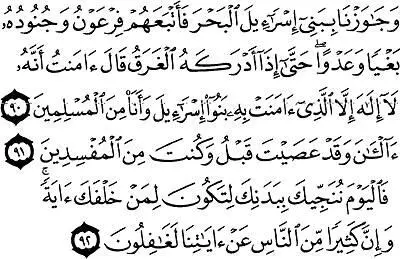 وَجَٰوَزۡنَا بِبَنِيٓ إِسۡرَٰٓءِيلَ ٱلۡبَحۡرَ فَأَتۡبَعَهُمۡ فِرۡعَوۡنُ وَجُنُودُهُۥ
بَغۡيٗا وَعَدۡوًاۖ حَتَّىٰٓ إِذَآ أَدۡرَكَهُ ٱلۡغَرَقُ قَالَ ءَامَنتُ أَنَّهُۥ
لَآ إِلَٰهَ إِلَّا ٱلَّذِيٓ ءَامَنَتۡ بِهِۦ بَنُوٓاْ إِسۡرَٰٓءِيلَ وَأَنَا۠ مِنَ ٱلۡمُسۡلِمِينَ ٩٠
ءَآلۡـَٰٔنَ وَقَدۡ عَصَيۡتَ قَبۡلُ وَكُنتَ مِنَ ٱلۡمُفۡسِدِينَ ٩١
فَٱلۡيَوۡمَ نُنَجِّيكَ بِبَدَنِكَ لِتَكُونَ لِمَنۡ خَلۡفَكَ ءَايَةٗۚ
وَإِنَّ كَثِيرٗا مِّنَ ٱلنَّاسِ عَنۡ ءَايَٰتِنَا لَغَٰفِلُونَ ٩٢